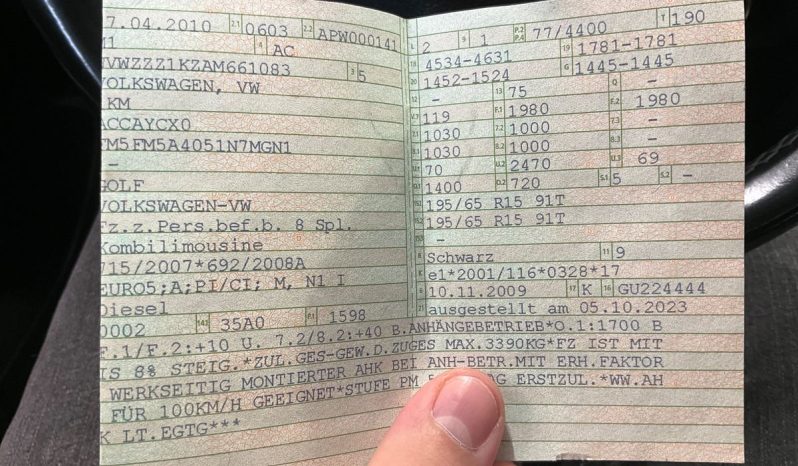 7.04.2010 2.1 0603 2.2 APW000141
M1 4 AC
WVWZZZ1KZAM661083 3 5
VOLKSWAGEN, VW
1KM
ACCAYCX0
FM5FM5A4051N7MGN1
-
GOLF
VOLKSWAGEN-VW
Fz.z.Pers.bef.b. 8 Spl.
Kombilimousine
715/2007*692/2008A
EURO5;A;PI/CI; M, N1 I
Diesel
0002 14.1 35A0 P.1 1598
L 2 9 1 P.2 P.4 77/4400 T 190
18 4534-4631 19 1781-1781
20 1452-1524 G 1445-1445
12 - 13 75 Q -
V.7 119 F.1 1980 F.2 1980
7.1 1030 7.2 1000 7.3 -
8.1 1030 8.2 1000 8.3 -
U.1 70 U.2 2470 U.3 69
O.1 1400 O.2 720 S.1 5 S.2 -
15.1 195/65 R15 91T
15.2 195/65 R15 91T
15.3 -
R Schwarz 11 9
K e1*2001/116*0328*17
6 10.11.2009 17 K 16 GU224444
21 ausgestellt am 05.10.2023
F.1/F.2:+10 U. 7.2/8.2:+40 B.ANHÄNGEBETRIEB*O.1:1700 B
IS 8% STEIG.*ZUL.GES-GEW.D.ZUGES MAX.3390KG*FZ IST MIT
WERKSEITIG MONTIERTER AHK BEI ANH-BETR.MIT ERH.FAKTOR
FÜR 100KM/H GEEIGNET*STUFE PM AG ERSTZUL.*WW.AH
K LT.EGTG***